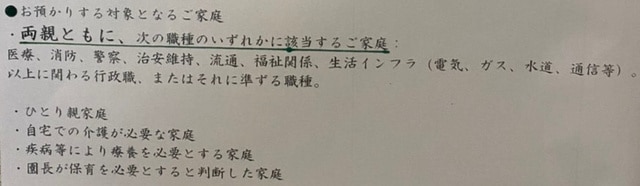 ●お預かりする対象となるご家庭
・両親ともに、次の職種のいずれかに該当するご家庭：
医療、消防、警察、治安維持、流通、福祉関係、生活インフラ（電気、ガス、水道、通信等）。
以上に関わる行政職、またはそれに準ずる職種。
・ひとり親家庭
・自宅での介護が必要な家庭
・疾病等により療養を必要とする家庭
・園長が保育を必要とすると判断した家庭